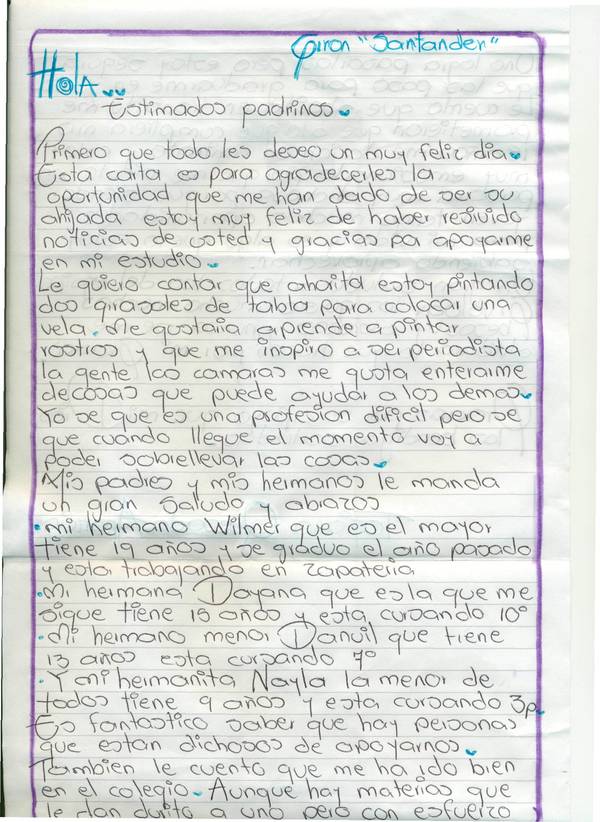 Giron "Santander"
Hola
Estimados padrinos.
Primero que todo les deseo un muy feliz dia.
Esta carta es para agradecerles la
oportunidad que me han dado de ser su
ahijada estoy muy feliz de haber resivido
noticias de usted y gracias pa apoyarme
en mi estudio.
Le quiero contar que ahorita estoy pintando
dos girasoles de tabla para colocar una
vela. Me gustaria aprende a pintar
rostros y que me inspiro a ser periodista
la gente las camaras me gusta enterarme
decosas que puede ayudar a los demas.
Yo se que es una profesion dificil pero se
que cuando llegue el momento voy a
poder sobrellevar las cosas.
Mis padres y mis hermanos le manda
un gran saludo y abrazos
• mi hermano Wilmer que es el mayor
tiene 19 años y se graduo el año pasado
y esta trabajando en zapateria
• Mi hermana Dayana que es la que me
sigue tiene 15 años y esta cursando 10°
• Mi hermano menor Danuil que tiene
13 años esta cursando 7°
• Y mi hermanita Nayla la menor de
todos tiene 9 años y esta cursando 3p.
Es fantastico saber que hay personas
que estan dichosos de apoyarnos.
Tambien le cuento que me ha ido bien
en el colegio. Aunque hay materias que
le dan durito a uno pero con esfuerzo